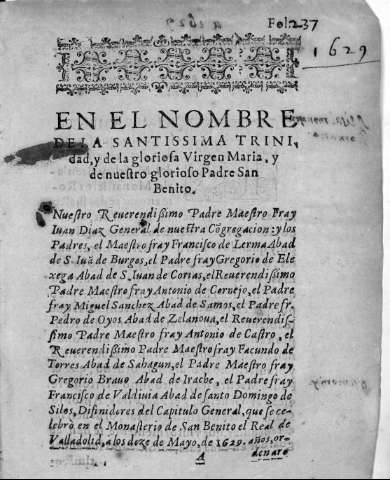 a 1629
Fol. 237
1629
EN EL NOMBRE
DE LA SANTISSIMA TRINI,
dad, y de la gloriosa Virgen Maria, y
de nuestro glorioso Padre San
Benito.
Nuestro Reuerendissimo Padre Maestro Fray
Iuan Diaz General de nuestra Cõgregacion: y los
Padres, el Maestro fray Francisco de Lerma Abad
de S. Iuã de Burgos, el Padre fray Gregorio de Ele
xega Abad de S. Iuan de Corias, el Reuerendissimo
Padre Maestro fray Antonio de Cornejo, el Padre
fray Miguel Sanchez Abad de Samos, el Padre fr.
Pedro de Oyos Abad de Zelanoua, el Reuerendis-
simo Padre Maestro fray Antonio de Castro, el
Reuerendissimo Padre Maestro fray Facundo de
Torres Abad de Sahagun, el Padre Maestro fray
Gregorio Brauo Abad de Irache, el Padre fray
Francisco de Valdiuia Abad de santo Domingo de
Silos, Difinidores del Capitulo General, que se ce-
lebrò en el Monasterio de San Benito el Real de
Valladolid, a los doze de Mayo, de 1629. años, or-
A
denaro